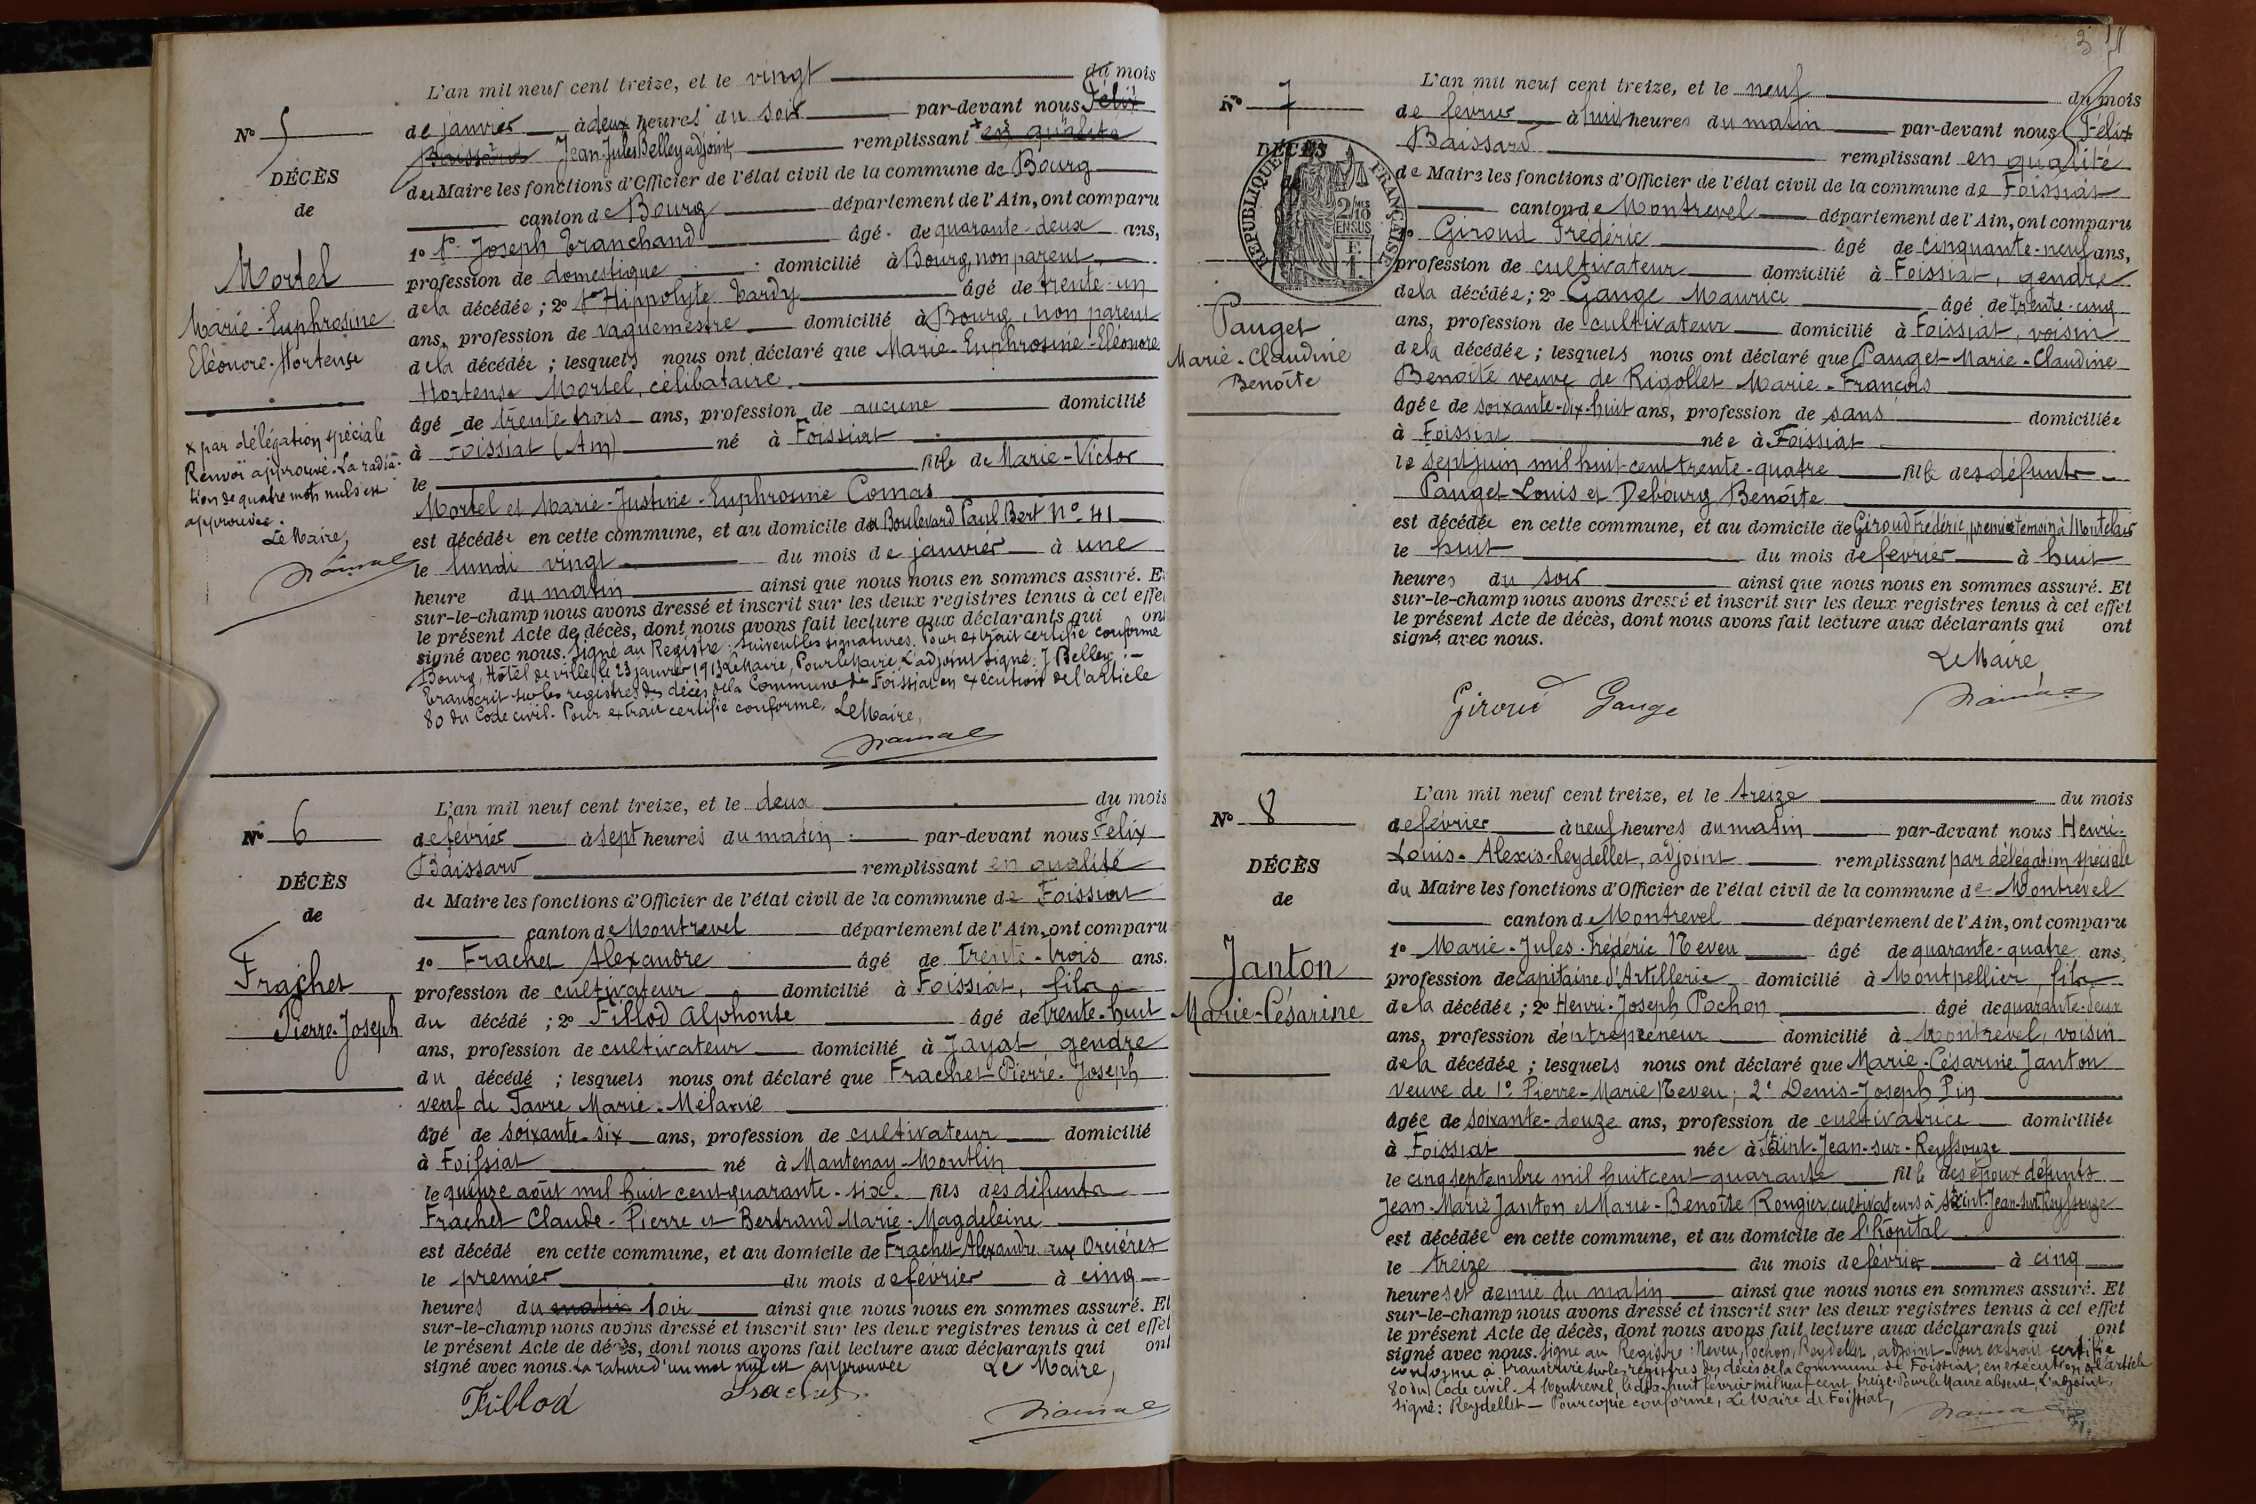 L'an mil neuf cent treize, et le vingt du mois
N° 5
de janvier à deux heures du soir par-devant nous Félix
Baissard Jean Jules Belley adjoint remplissant x en qualité
DÉCÈS
de
du Maire les fonctions d'Officier de l'état civil de la commune de Bourg
canton de Bourg département de l'Ain, ont comparu
1° Joseph Tranchand âgé de quarante-deux ans,
Mortel
Marie-Euphrosine
Eléonore-Hortense
profession de domestique domicilié à Bourg, non parent
de la décédée ; 2° Hippolyte Tardy âgé de trente-un
ans, profession de vaguemestre domicilié à Bourg, non parent
de la décédée ; lesquels nous ont déclaré que Marie-Euphrosine-Eléonore
Hortense Mortel, célibataire.
âgé de trente trois ans, profession de aucune domicilié
à Foissiat (Ain) né à Foissiat
le fille de Marie-Victor
Mortel et Marie-Justine-Euphrosine Comas
est décédée en cette commune, et au domicile du Boulevard Paul Bert N° 41
le lundi vingt du mois de janvier à une
heure du matin ainsi que nous nous en sommes assuré. Et
sur-le-champ nous avons dressé et inscrit sur les deux registres tenus à cet effet
le présent Acte de décès, dont nous avons fait lecture aux déclarants qui ont
signé avec nous. Signé au Registre : suivent les signatures. Pour extrait certifié conforme
Bourg, Hôtel de ville le 23 janvier 1913 Le Maire, Pour le Maire L'adjoint signé : J Belley :-
Transcrit sur les registres des décès de la Commune de Foissiat en exécution de l'article
80 du Code civil. Pour extrait certifié conforme, Le Maire,
x par délégation spéciale
Renvoi approuvé. La radia-
tion de quatre mots nuls est
approuvée.
Le Maire,
L'an mil neuf cent treize, et le deux du mois
N° 6
de février à sept heures du matin par-devant nous Félix
Baissard remplissant en qualité
DÉCÈS
de
de Maire les fonctions d'Officier de l'état civil de la commune de Foissiat
canton de Montrevel département de l'Ain, ont comparu
Frachet
Pierre-Joseph
1° Frachet Alexandre âgé de trente-trois ans.
profession de cultivateur domicilié à Foissiat, fils
du décédé ; 2° Fillod Alphonse âgé de trente-huit
ans, profession de cultivateur domicilié à Jayat, gendre
du décédé ; lesquels nous ont déclaré que Frachet Pierre-Joseph
veuf de Favre Marie-Mélanie
âgé de soixante-six ans, profession de cultivateur domicilié
à Foissiat né à Mantenay-Montlin
le quinze août mil huit cent quarante-six fils des défunts
Frachet Claude-Pierre et Bertrand Marie-Magdeleine
est décédé en cette commune, et au domicile de Frachet Alexandre aux Orcières
le premier du mois de février à cinq
heures du matin soir ainsi que nous nous en sommes assuré. Et
sur-le-champ nous avons dressé et inscrit sur les deux registres tenus à cet effet
le présent Acte de décès, dont nous avons fait lecture aux déclarants qui ont
signé avec nous. La rature d'un mot nul est approuvée Le Maire,
Fillod Frachet
3
L'an mil neuf cent treize, et le neuf du mois
N° 7
de février à huit heures du matin par-devant nous Félix
Baissard remplissant en qualité
DÉCÈS
de
REPUBLIQUE FRANÇAISE
2/10 EN SUS
de Maire les fonctions d'Officier de l'état civil de la commune de Foissiat
canton de Montrevel département de l'Ain, ont comparu
1° Giroud Frédéric âgé de cinquante-neuf ans,
profession de cultivateur domicilié à Foissiat, gendre
de la décédée ; 2° Gange Maurice âgé de trente-cinq
Pauget
Marie-Claudine
Benoîte
ans, profession de cultivateur domicilié à Foissiat, voisin
de la décédée ; lesquels nous ont déclaré que Pauget Marie-Claudine
Benoîte veuve de Rigollet Marie-François
âgée de soixante-dix-huit ans, profession de sans domiciliée
à Foissiat née à Foissiat
le sept juin mil huit-cent trente-quatre fille des défunts
Pauget Louis et Debourg Benoîte
est décédée en cette commune, et au domicile de Giroud Frédéric, premier témoin à Montclair
le huit du mois de février à huit
heures du soir ainsi que nous nous en sommes assuré. Et
sur-le-champ nous avons dressé et inscrit sur les deux registres tenus à cet effet
le présent Acte de décès, dont nous avons fait lecture aux déclarants qui ont
signé avec nous.
Le Maire,
Giroud Gange
L'an mil neuf cent treize, et le treize du mois
N° 8
de février à neuf heures du matin par-devant nous Henri-
Louis-Alexis-Reydellet, adjoint remplissant par délégation spéciale
DÉCÈS
de
du Maire les fonctions d'Officier de l'état civil de la commune de Montrevel
canton de Montrevel département de l'Ain, ont comparu
Janton
Marie-Césarine
1° Marie-Jules-Frédéric Neveu âgé de quarante-quatre ans,
profession de capitaine d'Artillerie domicilié à Montpellier, fils
de la décédée ; 2° Henri-Joseph Pochon âgé de quarante-deux
ans, profession d'entrepreneur domicilié à Montrevel, voisin
de la décédée ; lesquels nous ont déclaré que Marie-Césarine Janton
veuve de 1° Pierre-Marie Neveu ; 2° Denis-Joseph Pin
âgée de soixante-douze ans, profession de cultivatrice domiciliée
à Foissiat née à Saint-Jean-sur-Reyssouze
le cinq septembre mil huit cent quarante fille des époux défunts
Jean-Marie Janton et Marie-Benoîte Rongier, cultivateurs à Saint-Jean-sur-Reyssouze
est décédée en cette commune, et au domicile de l'hôpital
le treize du mois de février à cinq
heures et demie du matin ainsi que nous nous en sommes assuré. Et
sur-le-champ nous avons dressé et inscrit sur les deux registres tenus à cet effet
le présent Acte de décès, dont nous avons fait lecture aux déclarants qui ont
signé avec nous. Signé au Registre : Neveu, Pochon, Reydellet, adjoint. Pour extrait certifié
conforme à transcrire sur les registres des décès de la Commune de Foissiat, en exécution de l'article
80 du Code civil. A Montrevel, le dix-huit février mil neuf cent treize. Pour le Maire absent, L'adjoint,
signé : Reydellet - Pour copie conforme, Le Maire de Foissiat,